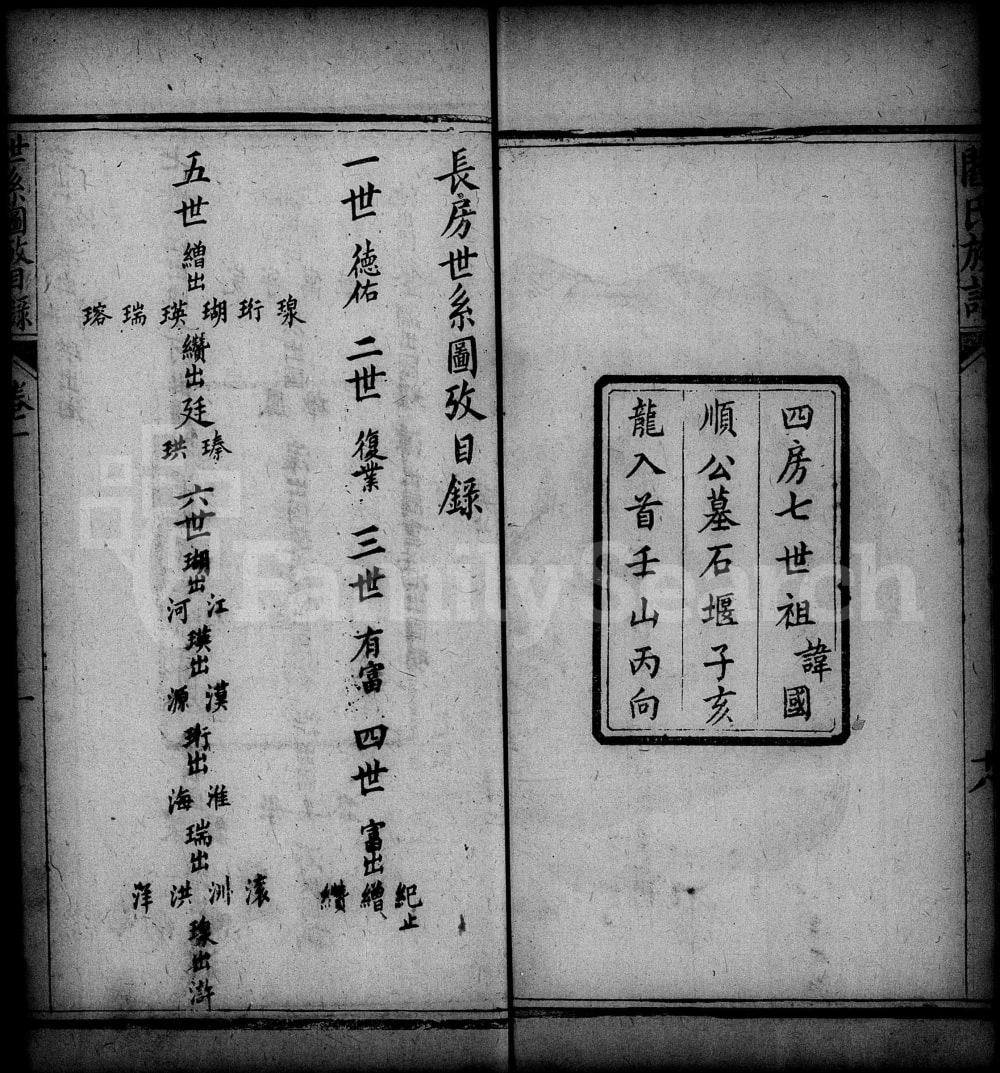 閻氏族譜
四房七世祖諱國
順公墓石堰子亥
龍入首壬山丙向
長房世系圖攷目錄
一世 德佑 二世 復業 三世 有富 四世 富出 紀止 繒 纘
五世 繒出 瑔 珩 瑚 瑛 瑞 瑢 纘出 廷 瑧 珙 六世 瑚出 江 河 瑛出 漢 源 珩出 淮 海 瑞出 滾 洲 洪 洋 瑔出 滸
世系圖攷目錄 卷一 一
FamilySearch